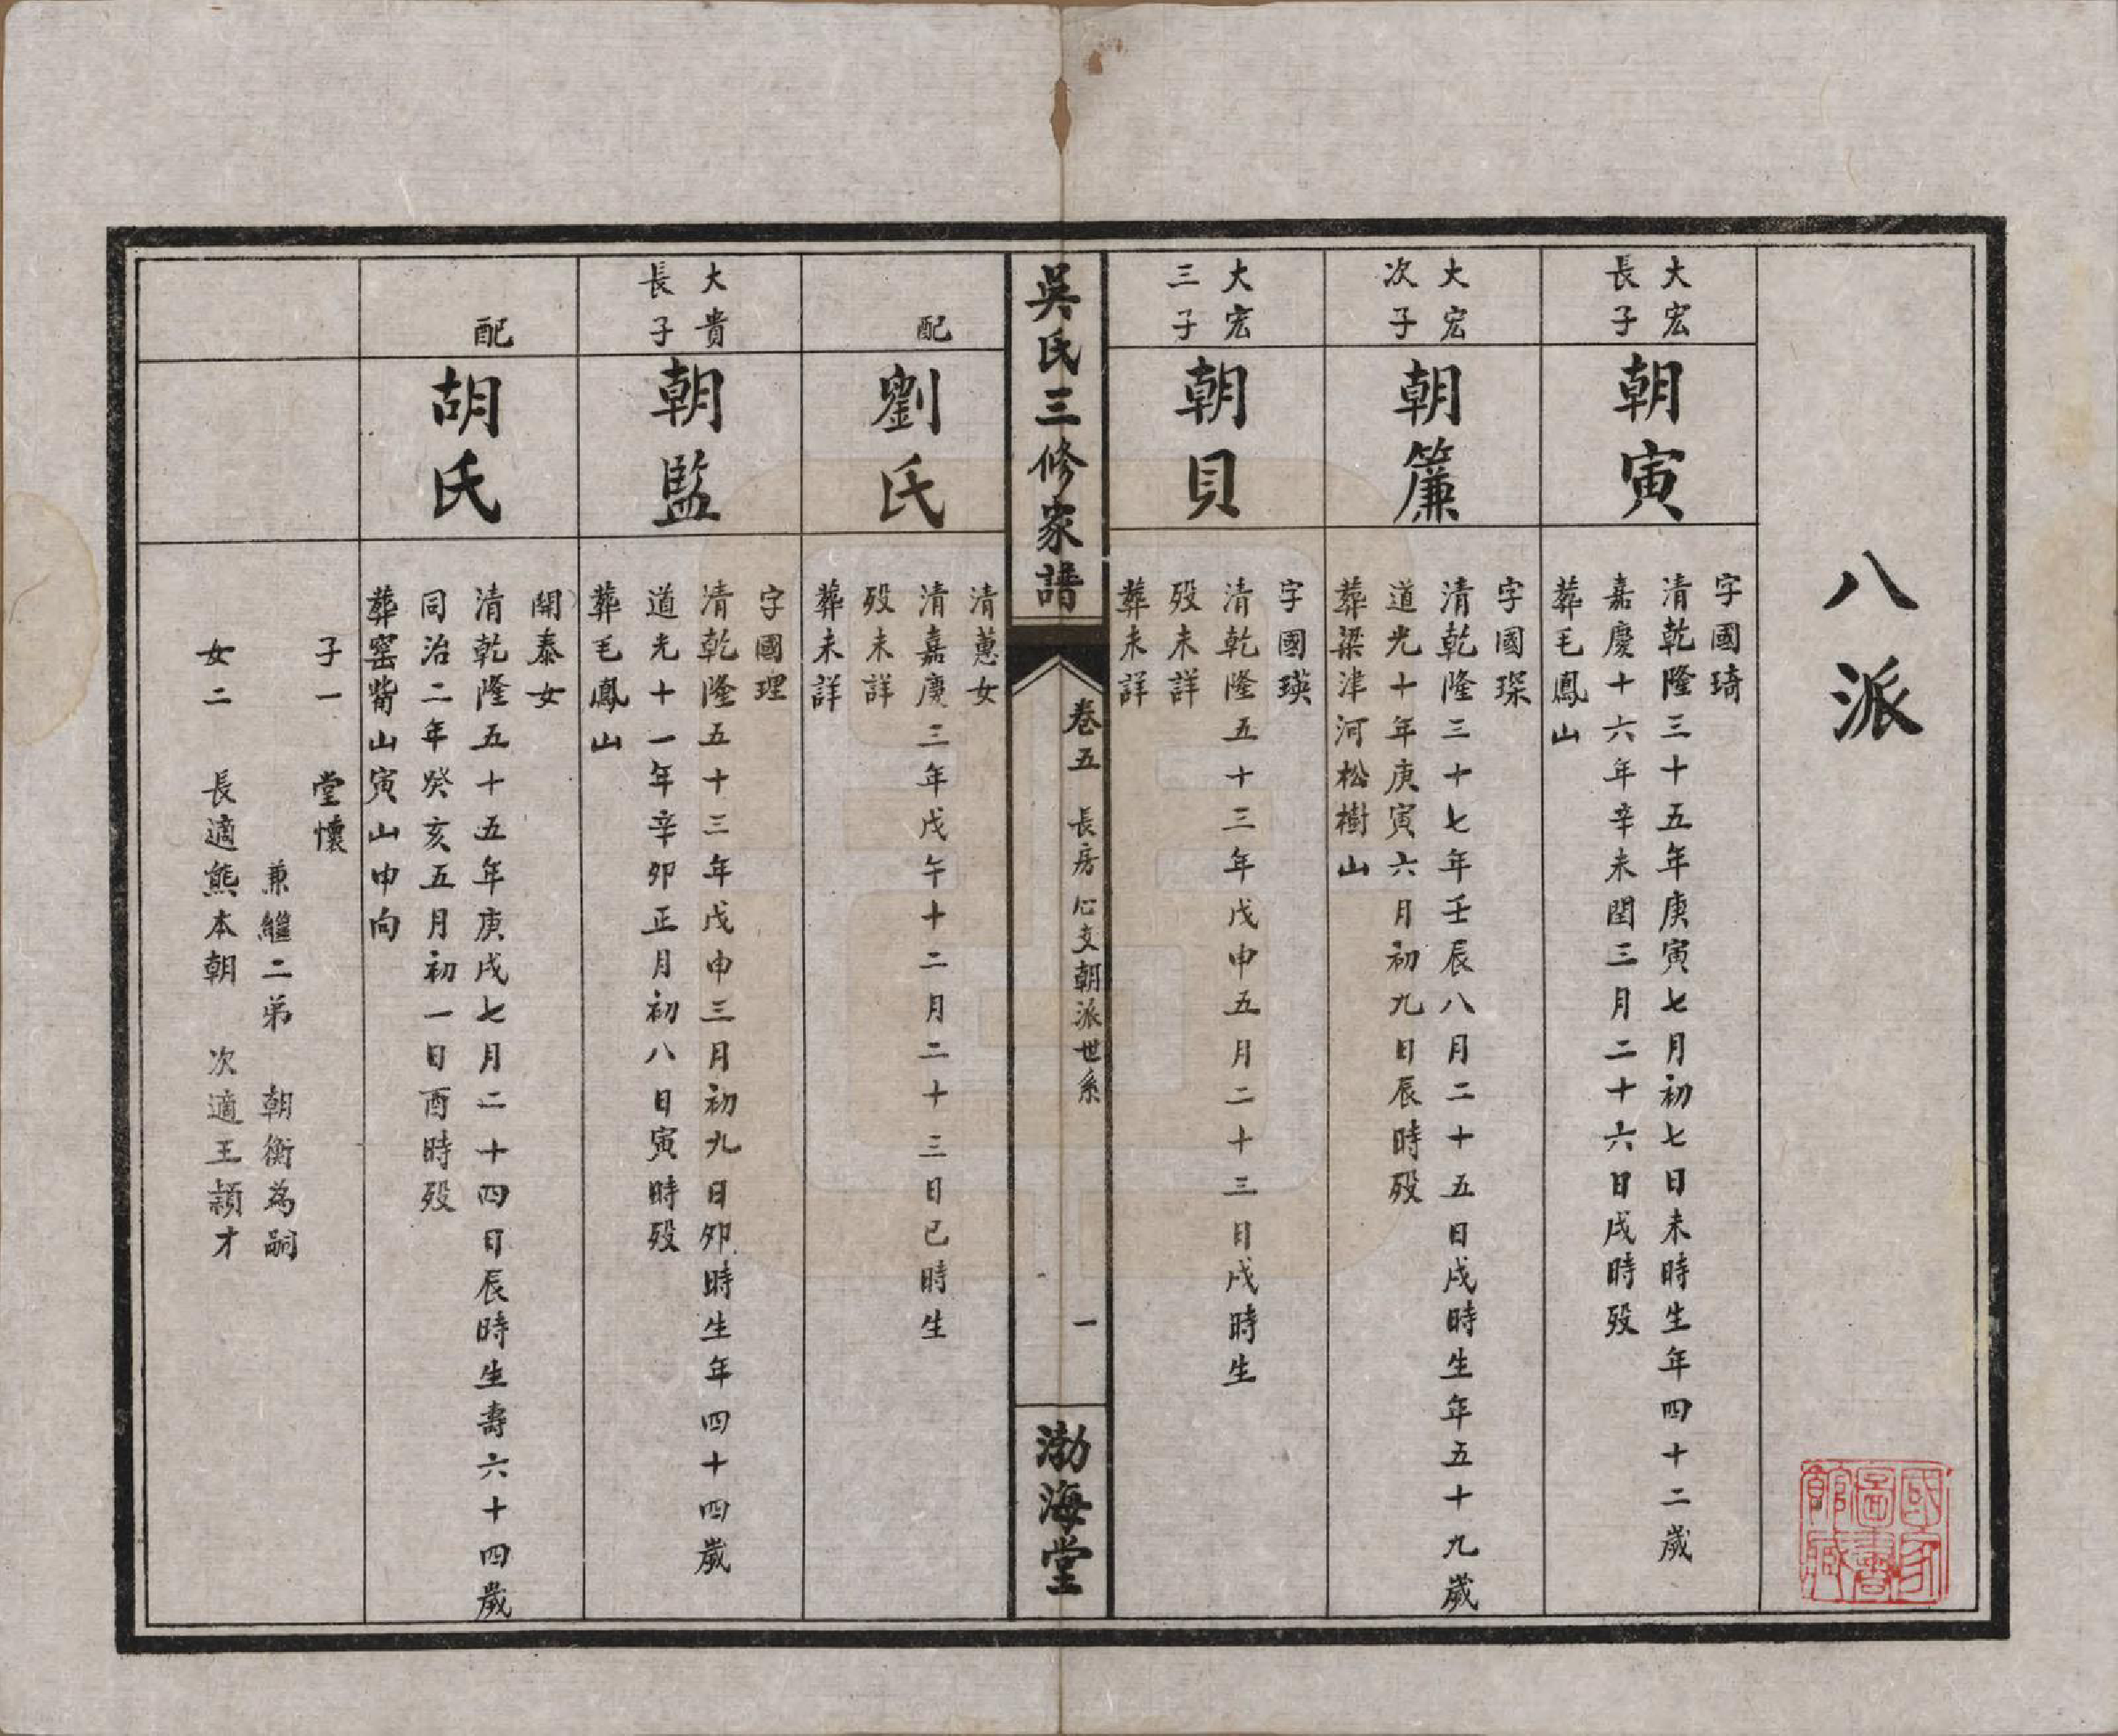 八派
大宏
長子
朝寅
字國琦
清乾隆三十五年庚寅七月初七日未時生年四十二歲
嘉慶十六年辛未閏三月二十六日戌時歿
葬毛鳳山
大宏
次子
朝簾
字國琛
清乾隆三十七年壬辰八月二十五日戌時生年五十九歲
道光十年庚寅六月初九日辰時歿
葬梁津河松樹山
大宏
三子
朝貝
字國瑛
清乾隆五十三年戊申五月二十三日戌時生
歿未詳
葬未詳
吳氏三修家譜
卷五 長房心支朝派世系
一
渤海堂
配
劉氏
清蕙女
清嘉慶三年戊午十二月二十三日巳時生
歿未詳
葬未詳
大貴
長子
朝監
字國理
清乾隆五十三年戊申三月初九日卯時生年四十四歲
道光十一年辛卯正月初八日寅時歿
葬毛鳳山
配
胡氏
開泰女
清乾隆五十五年庚戌七月二十四日辰時生壽六十四歲
同治二年癸亥五月初一日酉時歿
葬窰背山寅山申向
子一 堂懷
兼繼二弟 朝衡為嗣
女二 長適熊本朝 次適王穎才
國家
圖書
館藏